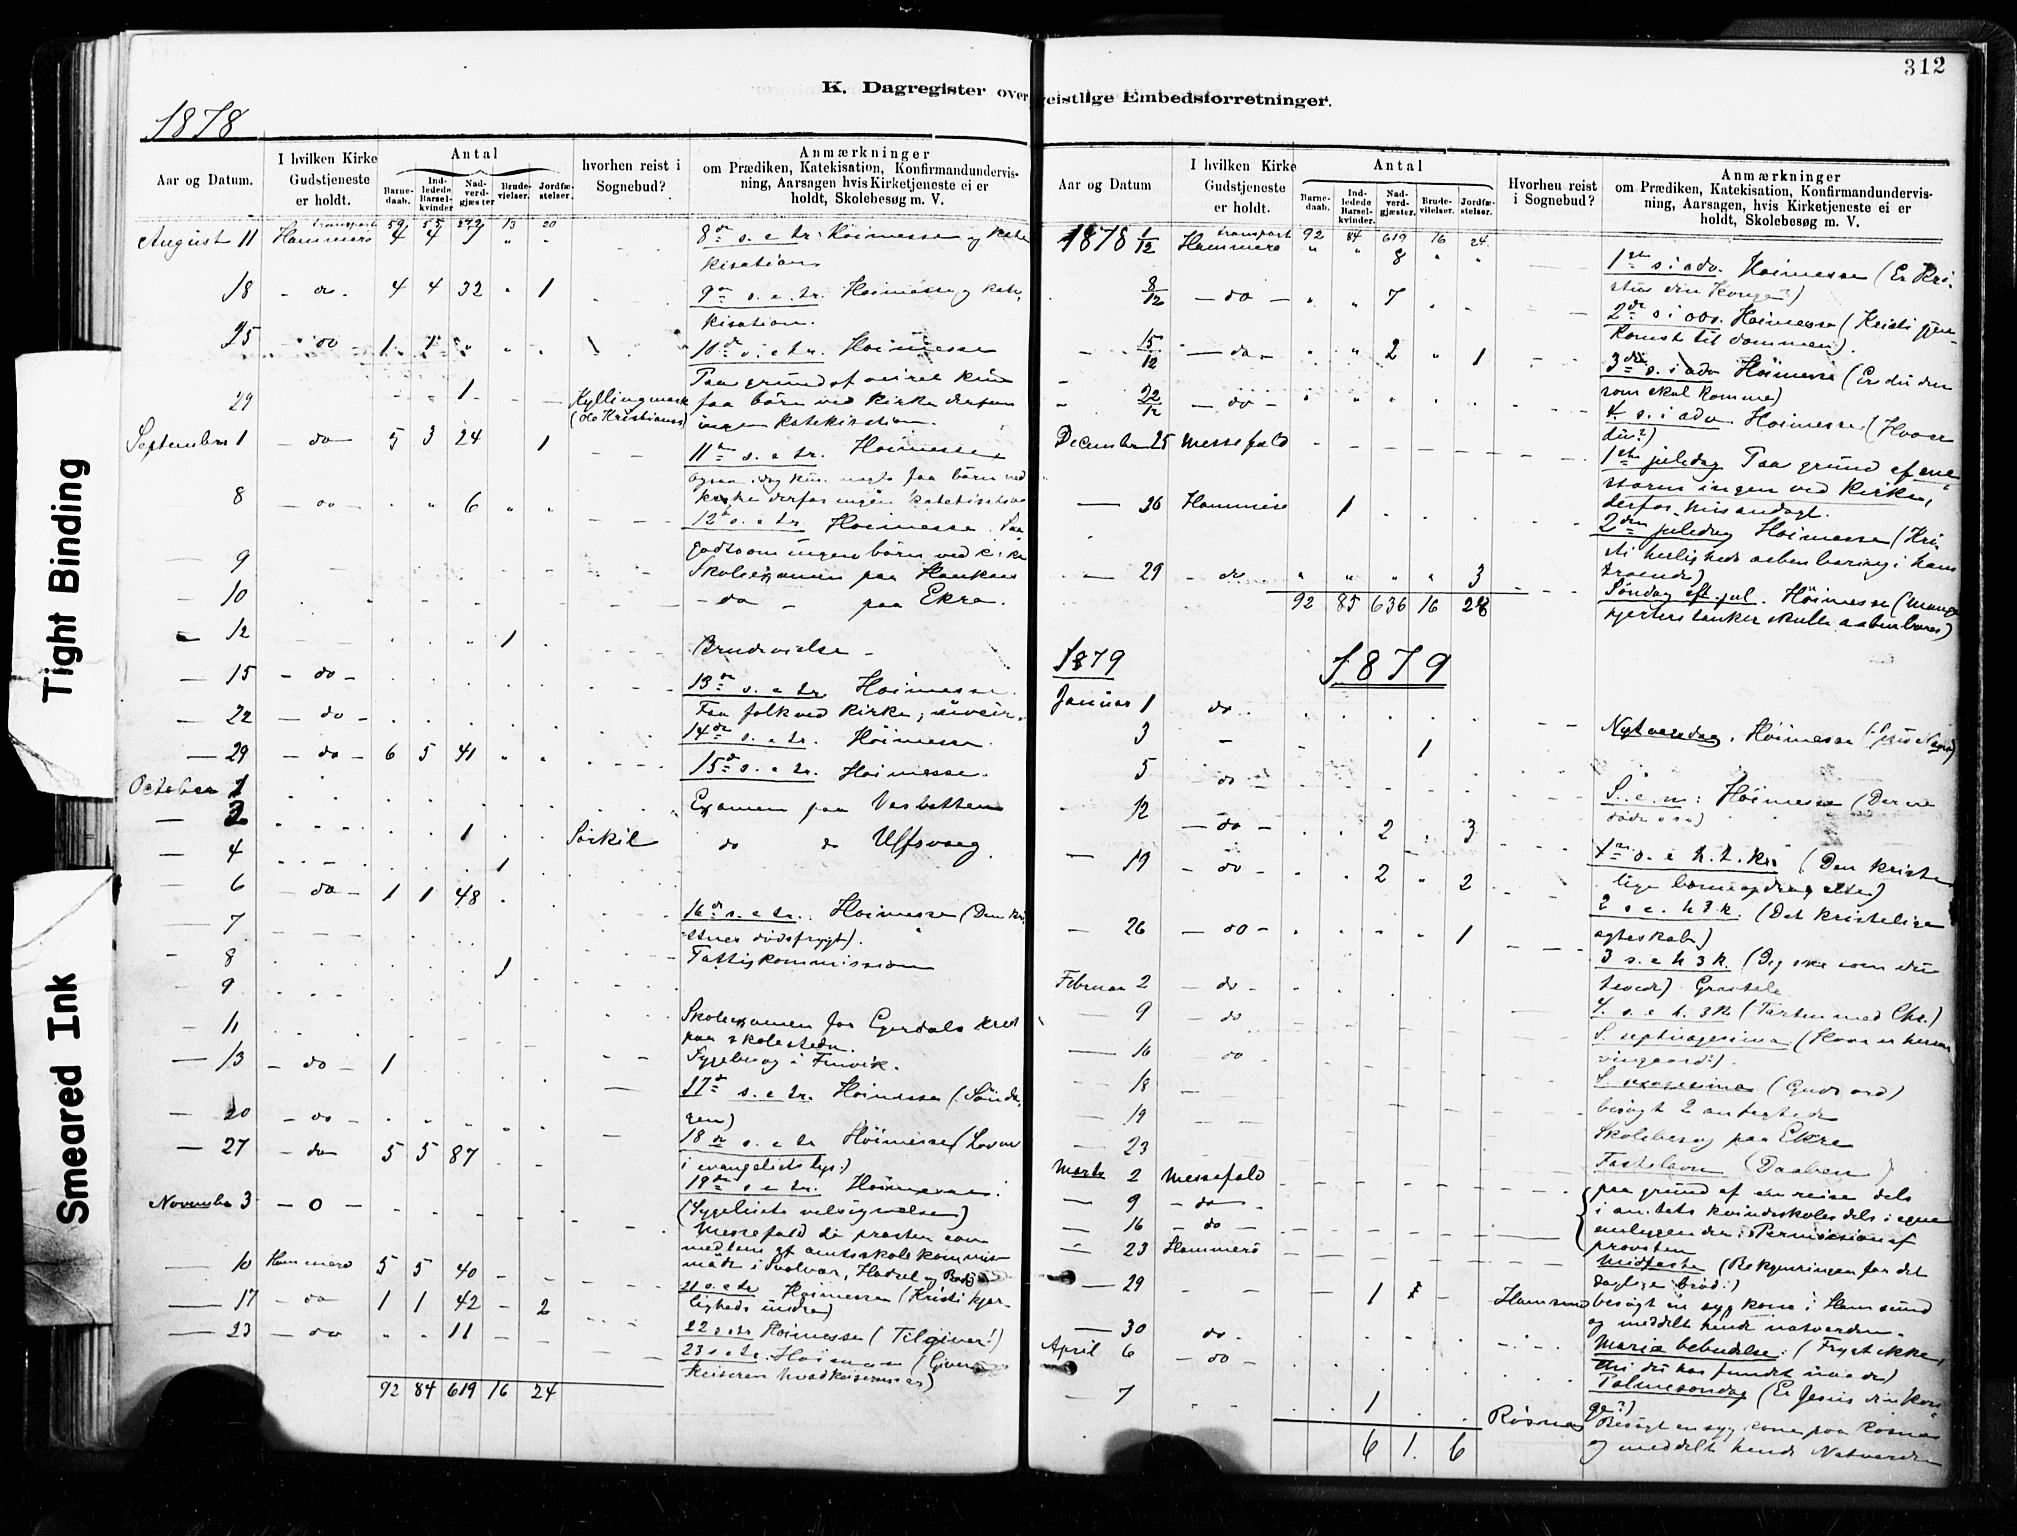 312
K. Dagregister over geistlige Embedsforretninger.
1878
Aar og Datum.
I hvilken Kirke Gudstjeneste er holdt.
Antal
Barnedaab.
Indledede Barselkvinder
Nadverdgjæster
Brudevielser.
Jordfæstelser.
hvorhen reist i Sognebud?
Anmærkninger
om Prædiken, Katekisation, Konfirmandundervisning, Aarsagen hvis Kirketjeneste ei er holdt, Skolebesøg m. V.
transport 59 55 272 13 20
August 11 Hammerø 4 4 7 " " 8de s. e. tr. Höimesse og kate
kisation
18 - do - 4 4 32 " 1 9de s. e. tr. Höimesse og kate
kisation.
25 - do - 1 1 " " 10de s. e. tr. Höimesse
Paa grund af veiret kun
29 1 Kyllingmark faa börn ved kirke derfor
(Ole Kristians) ingen katekisation.
September 1 - do - 5 3 24 1 11te s. e. tr. Höimesse
kirke derfor ingen katekisation
8 - do - " " 6 " " 12te s. e. tr. Höimesse. Paa
godt som ingen börn ved kirke
9 Skoleexamen paa
10 - do - paa Ekra.
12 1 Brudevielse -
15 - do - 13de s. e. tr. Höimesse.
Faa folk ved kirke; uveir.
22 - do - 14de s. e. tr. Höimesse.
29 - do - 6 5 41 " " 15de s. e. tr. Höimesse.
October 1 Examen paa Vesbotten
2 1 Sörkil do do Ulfsvaag.
4 1
6 - do - 1 1 48 16de s. e. tr. Höimesse (Den kri
stnes dödsfrygt).
7 Fattigkommission
8 1
9 Skoleexamen for Egerdals kreds
paa skolestedn.
11 Sygebesøg i Finvik.
13 - do - 1 17de s. e. tr. Höimesse (Sönda
gen)
20 - do - 18de s. e. tr Höimesse (Loven
i evangeliets lys.)
27 - do 5 5 87 19de s. e. tr. Höimesse.
(Sygeliets velsignelse)
November 3 - O - Messefold da præsten som
medlem af amtsskolekommis
möde i Svolvær, Hadsel og Bodö
10 Hammerø 5 5 40 21 s. e. tr Höimesse (Kristi kjær-
ligheds undre)
17 - do 1 1 42 - 2 22 s. e. tr Höimesse (Tilgiver!)
23 - do " " 11 23 s. e. tr. Höimesse (Giver
keiseren hvad keiserens er)
92 84 619 16 24
Aar og Datum
I hvilken Kirke Gudstjeneste er holdt.
Antal
Barnedaab.
Indledede Barselkvinder.
Nadverdgjæster.
Brudevielser.
Jordfæstelser.
Hvorhen reist i Sognebud?
Anmærkninger
om Prædiken, Katekisation, Konfirmandundervisning, Aarsagen, hvis Kirketjeneste ei er holdt, Skolebesøg m. V.
transport 92 84 619 16 24
1878 1/12 Hammerø " " 8 " " 1ste s. i adv. Höimesse (Er Kri-
stus din Konge?)
8/12 - do - " " 7 2den s. i adv. Höimesse (Kristi gjen-
komst til dommen).
15/12 - do - " " 2 " 1 3die s. i adv Höimesse (Er du den
som skal komme)
22/12 - do - 4. s. i adv. Höimesse. (Hvo er
du?)
December 25 Messefold 1ste juledag Paa grund af sne-
storm ingen ved kirken,
derfor
26 Hammerø 1 2den juledag Höimesse (Kri-
sti herligheds aabenbaring i hans
troende)
29 - do " " " " 3 Söndag eft. jul. Höimesse (Mange
hjerters tanker skulle aabenbares)
92 85 636 16 28
1879 1879
Januar 1 do Nytaarsdag. Höimesse (: Jesu Navn)
3 1
5 do S. e. n: Höimesse (Der ere
döde o s v)
12 - do - 2 3 1ste s. e h. 3. k. (Den kriste
lige börneopdragelse)
19 - do - 2 2 2 s e. h 3 k. (Det kristelige
ægteskab)
26 - do - 1 3 s. e h 3 k. (Dig ske som du
troede)
Februar 2 - do - 4. s. e h. 3 K (Farten med Chr.)
9 do S. septuagesima (Hvor er herrens
vingaard?).
16 do S. sexagesima (Guds ord)
18 besøgt 2
19 Skolebesøg paa Ekre
23 Fastelavn (Daaben)
Marts 2 Messefold paa grund af en reise dels
9 - do i amtets kvindeskole dels i egne
16 - do - anliggender: Permission af
provsten
23 Hammerø Midfaste (Bekymringen for det
daglige bröd:)
29 1 Hamsund besøgt en syg kone i Hamsund
og meddelt hende natverden.
30 do Mariæ bebudelse. (Frygt ikke,
thi du har fundet naade)
April 6 - do - Palmesöndag (Er Jesus din kon-
ge?)
7 1 Rösnæs Besøgt en syg kone paa Rosnæs
og meddelt hende Natverden
6 1. 6
Tight Binding
Smeared Ink